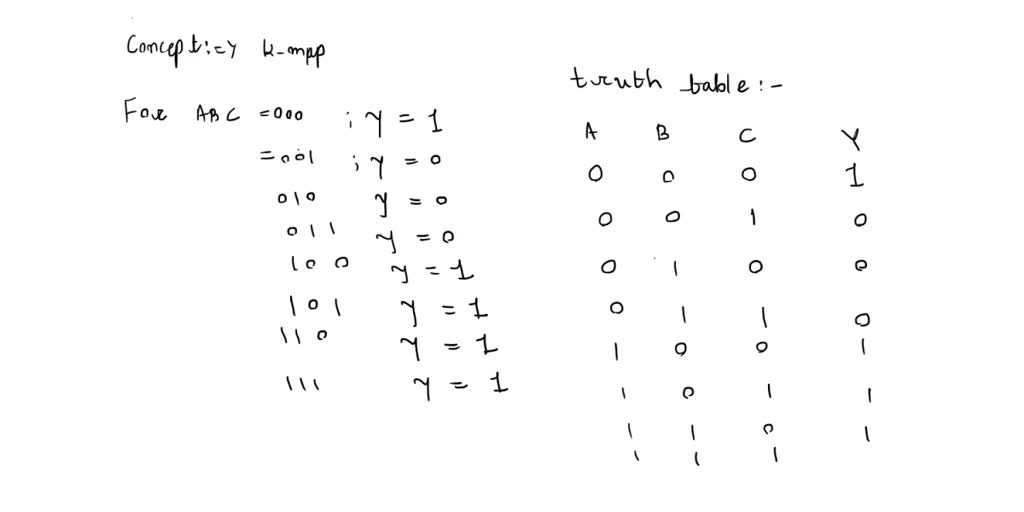 Concept:=y k-mpp
For ABC =000 ; y = 1
=001 ; y = 0
010 y = 0
011 y = 0
100 y = 1
101 y = 1
110 y = 1
111 y = 1
truth table:-
A B C Y
0 0 0 1
0 0 1 0
0 1 0 0
0 1 1 0
1 0 0 1
1 0 1 1
1 1 0 1
1 1 1